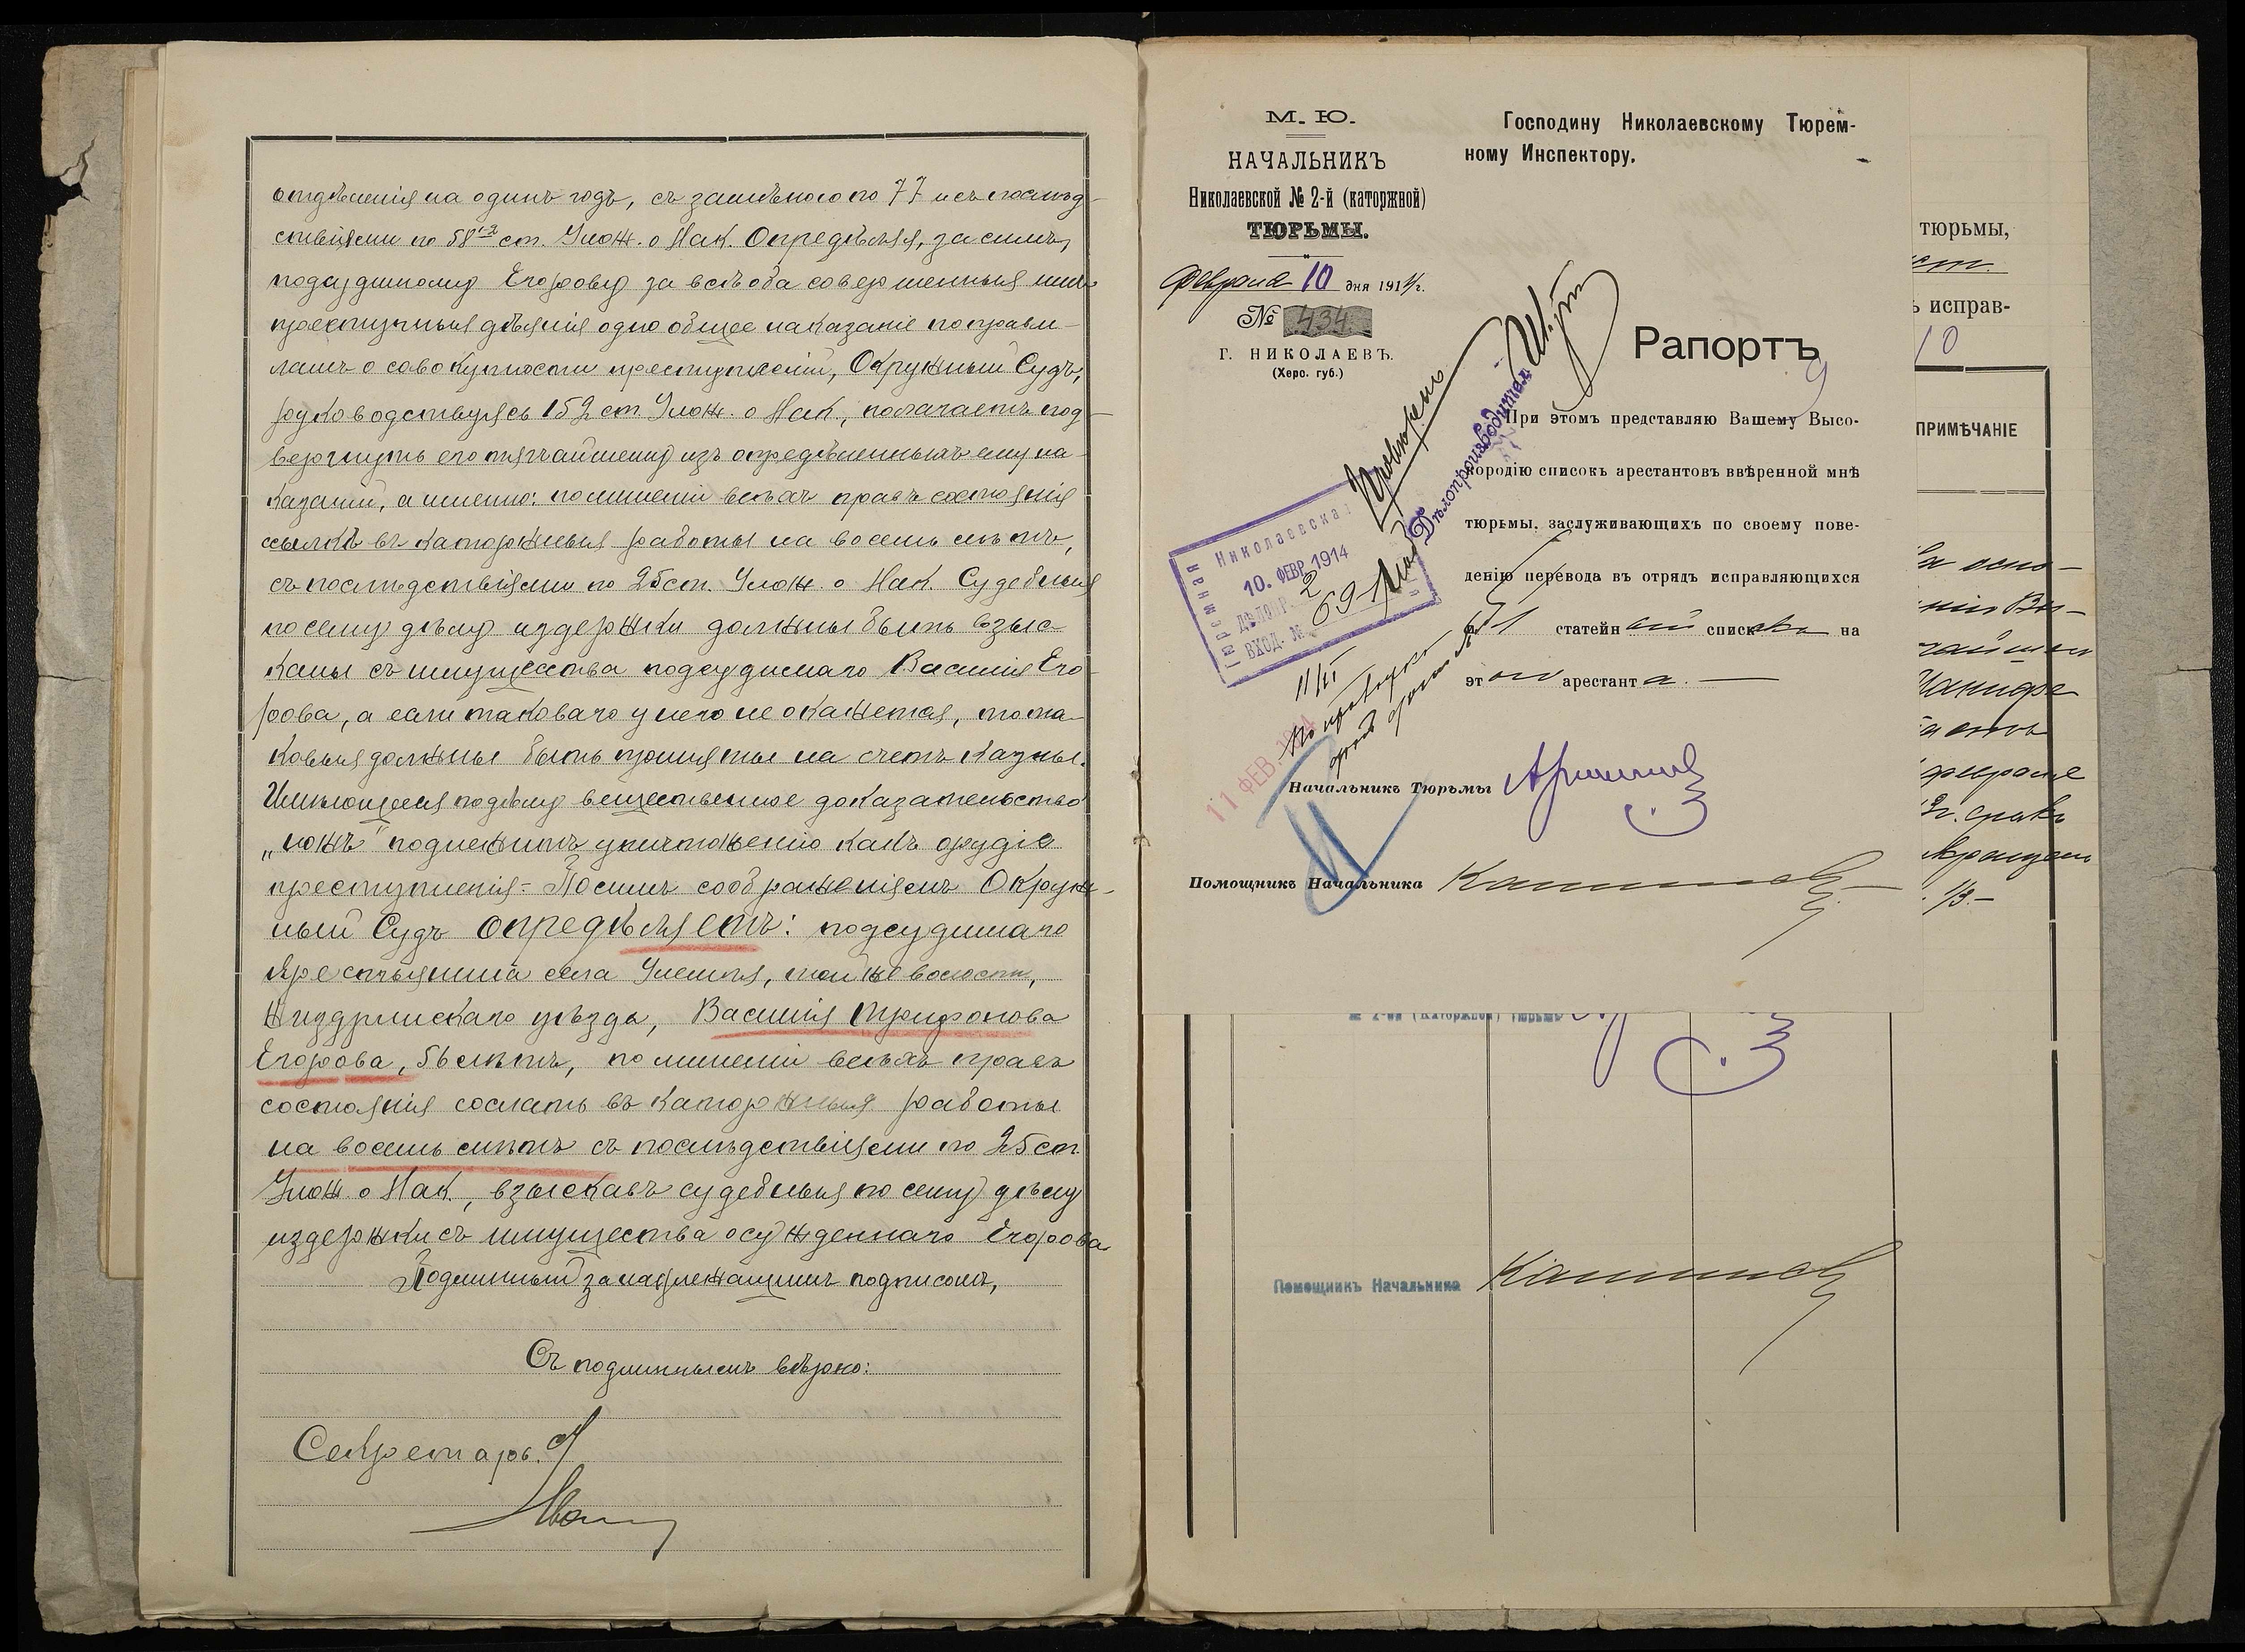 отдѣленія на одинъ годъ, съ замѣною по 77 и съ послѣд-
ствіями по 58¹·² ст. Улож. о Нак. Опредѣляя, за симъ,
подсудимому Егорову за всѣ оба совершенныя имъ
преступныя дѣянія одно общее наказаніе по прави-
ламъ о совокупности преступленій, Окружный Судъ,
руководствуясь 152 ст. Улож. о Нак., полагаетъ под-
вергнуть его тягчайшему изъ опредѣленныхъ ему на-
казаній, а именно: по лишеніи всѣхъ правъ состоянія
ссылкѣ въ каторжныя работы на восемь лѣтъ,
съ послѣдствіями по 25 ст. Улож. о Нак. Судебныя
по сему дѣлу издержки должны быть взыс-
каны съ имущества подсудимаго Василія Его-
рова, а если таковаго у него не окажется, то та-
ковыя должны быть приняты на счетъ казны.
Имѣющееся по дѣлу вещественное доказательство
„ножъ" подлежитъ уничтоженію какъ орудіе
преступленія – По симъ соображеніямъ Окруж-
ный Судъ опредѣляетъ: подсудимаго
крестьянина села Улемля, той же волости,
Жиздринскаго уѣзда, Василія Трифонова
Егорова, лѣтъ, по лишеніи всѣхъ правъ
состоянія сослать въ каторжныя работы
на восемь лѣтъ съ послѣдствіями по 25 ст.
Улож. о Нак., взыскавъ судебныя по сему дѣлу
издержки съ имущества осужденнаго Егорова
Подлинный за надлежащимъ подписомъ,
Съ подлиннымъ вѣрно:
Секретарь
М. Ю.
НАЧАЛЬНИКЪ
Николаевской № 2-й (каторжной)
ТЮРЬМЫ.
Февраля 10 дня 1914 г.
№ 434
Г. НИКОЛАЕВЪ.
(Херс. губ.)
Господину Николаевскому Тюрем-
ному Инспектору.
Рапортъ
9
При этомъ представляю Вашему Высо-
кородію списокъ арестантовъ ввѣренной мнѣ
тюрьмы, заслуживающихъ по своему пове-
денію перевода въ отрядъ исправляющихся
и 1 статейный списокъ на
этого арестанта.
Дѣлопроизводителя
Николаевская
Тюремная
10. ФЕВР 1914
ДѢЛОПР. 2
ВХОД. № 691
11/II
11 ФЕВ. 1914
Начальникъ Тюрьмы
Помощникъ Начальника
№ 2-ой (каторжной) тюрьмы
Помощникъ Начальника
тюрьмы,
ст.
ъ исправ-
10
ПРИМѢЧАНІЕ
осно-
Ма­нифе
февраля